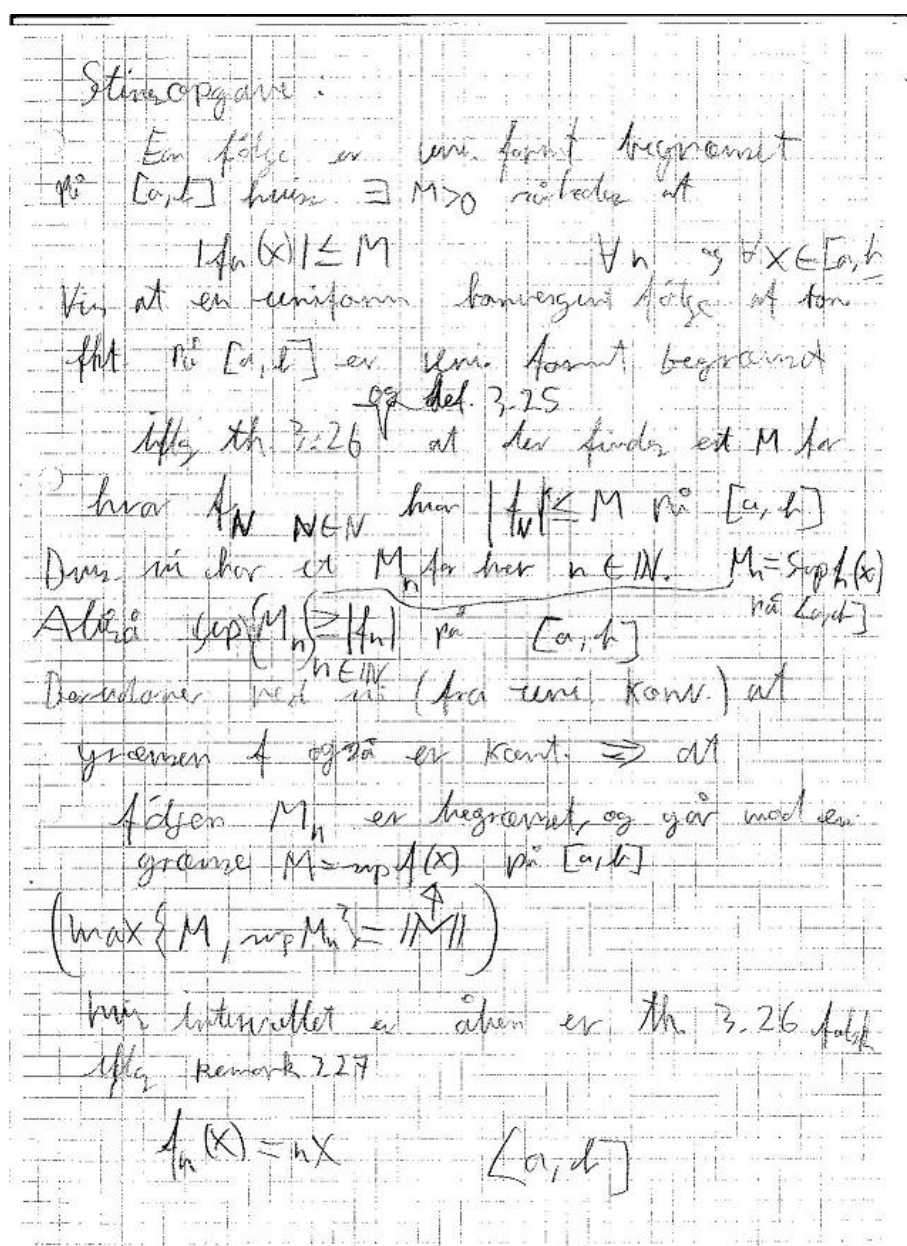 Stinesopgave :
En følge er uni. formt begrænset
på [a,b] hvis ∃ M>0 således at
|fn(x)| ≤ M ∀n og ∀x∈[a,b
Vis at en uniform konvergent følge af kon
fkt. på [a,b] er uni. formt begrænset
og def. 3.25
iflg th. 3.26 at der findes et M for
hvor f_N N∈N hvor |f_N| ≤ M på [a,b]
Dvs. vi har et M_n for hver n∈ℕ. M_n = sup f_n(x)
på [a,b]
Altså sup(M_n) ≥ |f_n| på [a,b]
n∈ℕ
Derudover ved vi (fra uni konv.) at
grænsen f også er kont. ⇒ at
følgen M_n er begrænset, og går mod en
grænse M = sup f(x) på [a,b]
(max{M, sup M_n} = ||M||)
hvis intervallet er åben er th. 3.26 falsk
iflg remark 3.27
f_n(x) = nx [a,b]